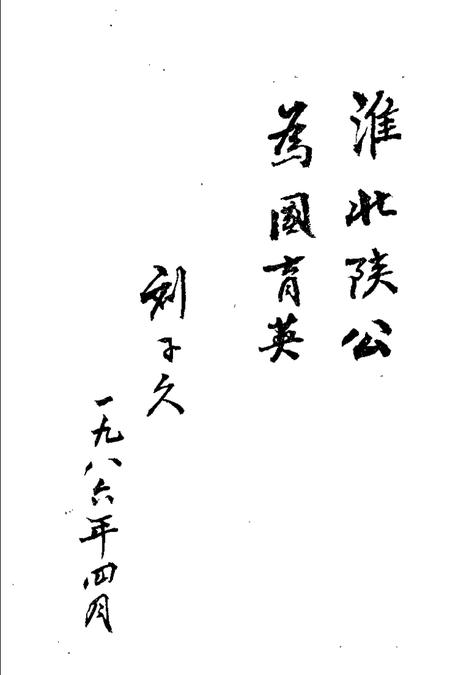 淮北陕公
為國育英
刘子久
一九八六年四月